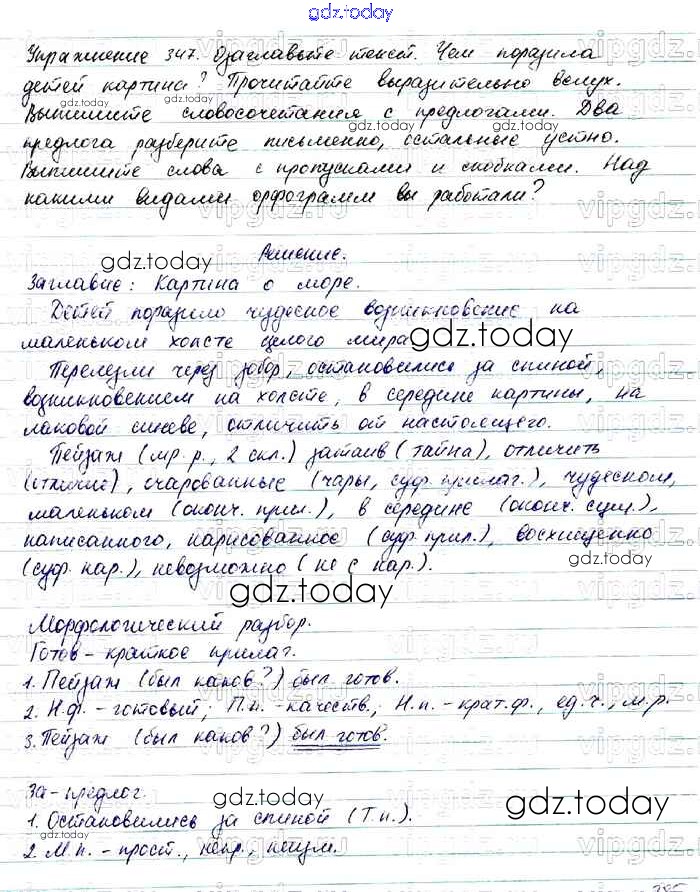 gdz.today
Упражнение 347. Озаглавьте текст. Чем поразила
детей картина? Прочитайте выразительно вслух.
Выпишите словосочетания с предлогами. Два
предлога разберите письменно, остальные устно.
Выпишите слова с пропусками и скобками. Над
какими видами орфограмм вы работали?
Решение.
Заглавие: Картина о море.
Детей поразило чудесное возникновение на
маленьком холсте целого мира.
Перелезли через забор, остановились за спиной,
возникновением на холсте, в середине картины, на
лаковой синеве, отличить от настоящего.
Пейзаж (мр.р., 2 скл.) затаив (тайна), отличить
(отличие), очарованные (чары, суф. прилаг.), чудесном,
маленьком (оконч. прил.), в середине (оконч. сущ.),
написанного, нарисованное (суф. прил.), восхищенно
(суф. нар.), невозможно (не с нар.).
Морфологический разбор.
Готов - краткое прилаг.
1. Пейзаж (был каков?) был готов.
2. Н.ф. - готовый; П.п. - качеств., Н.п. - крат.ф., ед.ч., м.р.
3. Пейзаж (был каков?) был готов.
За - предлог.
1. Остановились за спиной (Т.п.).
2. М.п. - прост., непр., неизм.